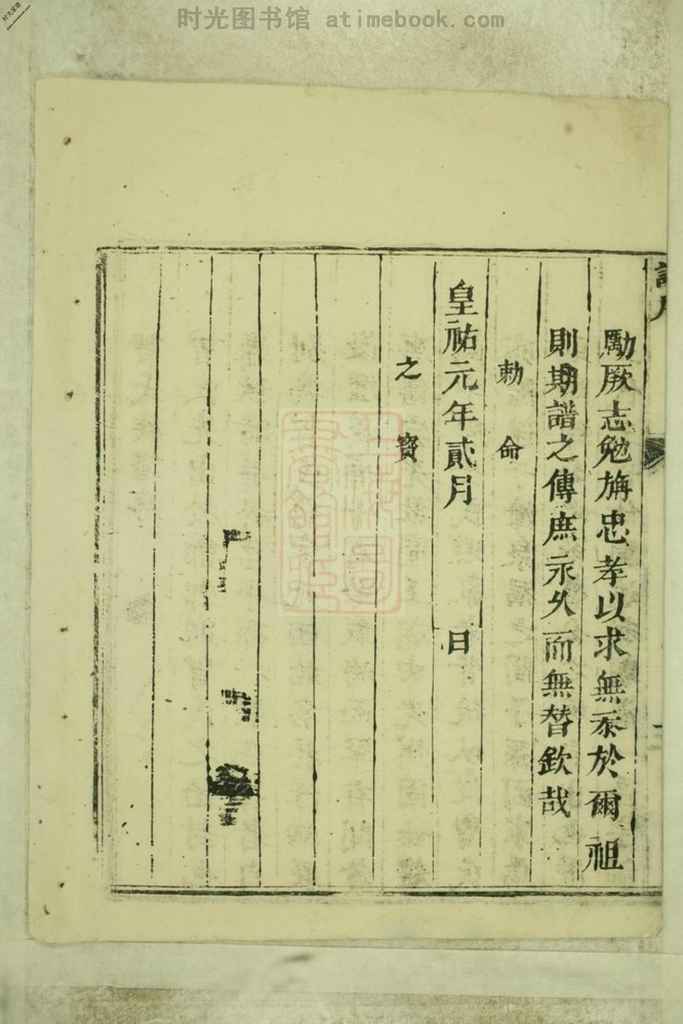 时光图书馆 atimebook.com
勵厥志勉旃忠孝以求無忝於爾祖
則期譜之傳庶永久而無替欽哉
勅命
皇祐元年貳月 日
之寳